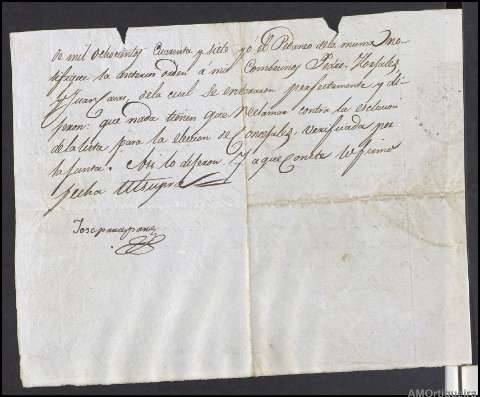 de mil ochocientos cuarenta y siete yó el Pedaneo de la misma no
tifiqué la anterior orden á mis Combecinos Pedro
y Juan Cano, de la cual se enteraron perfectamente y di-
jeron: que nada tienen que Reclamar contra la esclucion
de la lista para la eleccion de Concejales verificada por
la Junta. Asi lo dijeron y a que conste lo firmo
fecha Utsupra
Jose
AMOrtigueira